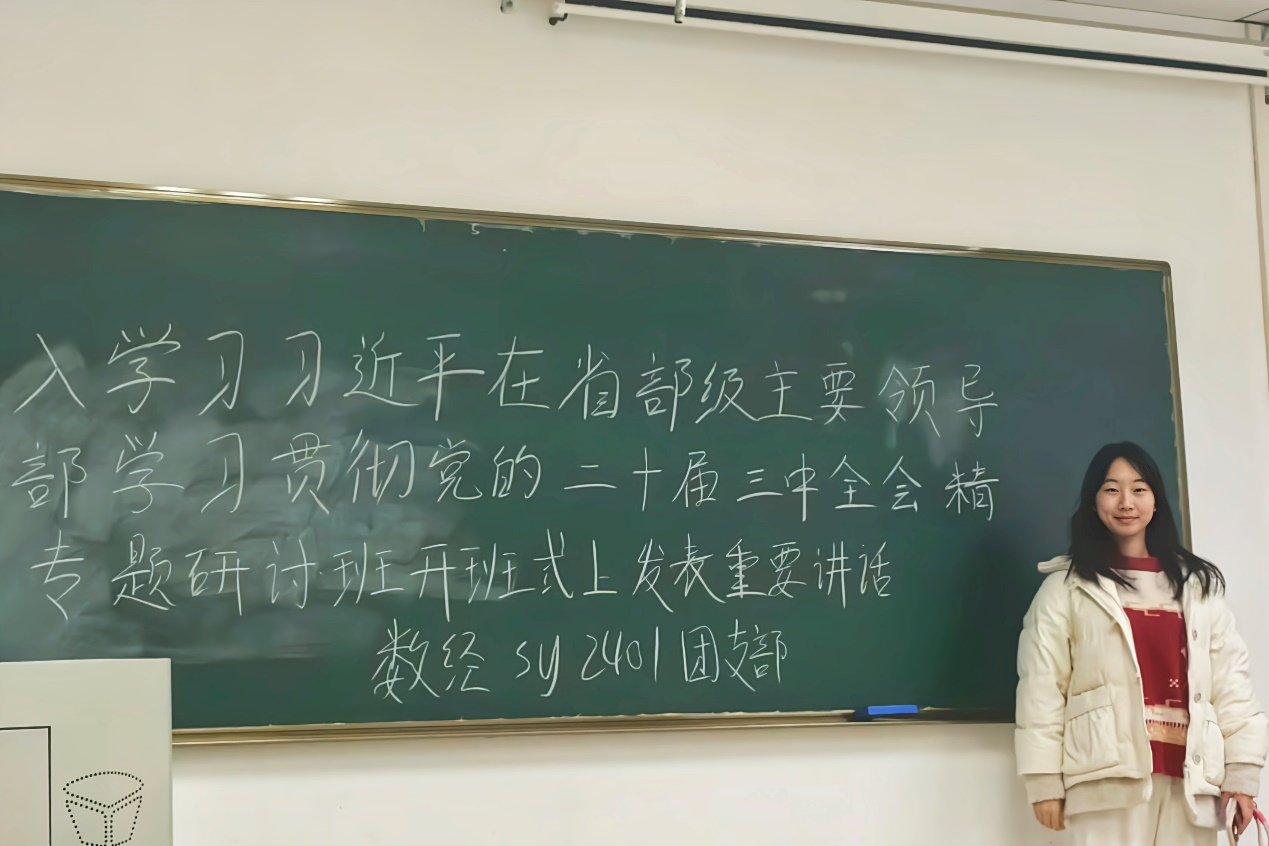 入学习习近平在省部级主要领导
部学习贯彻党的二十届三中全会精
专题研讨班开班式上发表重要讲话
数经 sy 2401 团支部